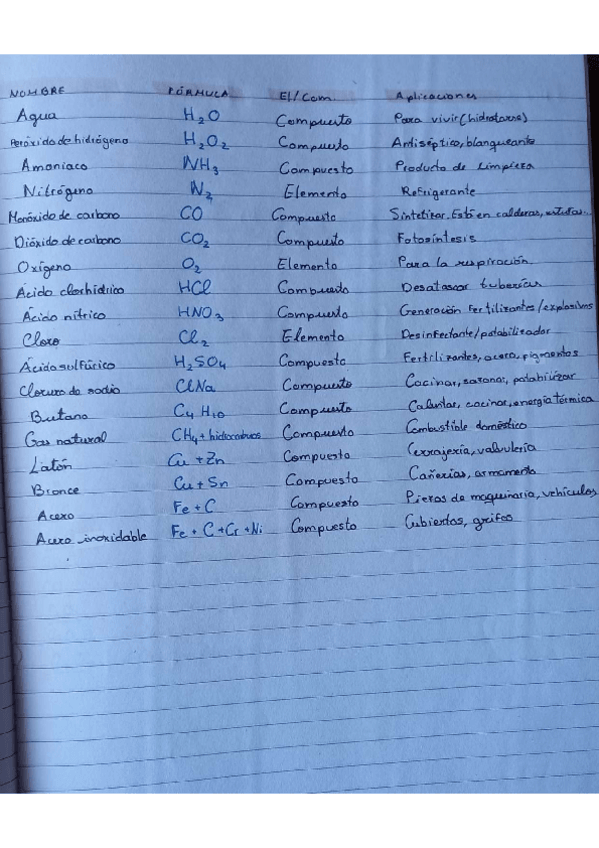 NOMBRE FÓRMULA El/Com. Aplicaciones
Agua H₂O Compuesto Para vivir (hidratarse)
Peróxido de hidrógeno H₂O₂ Compuesto Antiséptico, blanqueante
Amoniaco NH₃ Compuesto Producto de limpieza
Nitrógeno N₂ Elemento Refrigerante
Monóxido de carbono CO Compuesto Sintetizar. Está en calderas, estufas...
Dióxido de carbono CO₂ Compuesto Fotosíntesis
Oxígeno O₂ Elemento Para la respiración
Ácido clorhídrico HCl Compuesto Desatascar tuberías
Ácido nítrico HNO₃ Compuesto Generación fertilizantes/explosivos
Cloro Cl₂ Elemento Desinfectante/potabilizador
Ácido sulfúrico H₂SO₄ Compuesto Fertilizantes, acero, pigmentos
Cloruro de sodio ClNa Compuesto Cocinar, sazonar, potabilizar
Butano C₄H₁₀ Compuesto Calentar, cocinar, energía térmica
Gas natural CH₄ + hidrocarburos Compuesto Combustible doméstico
Latón Cu + Zn Compuesto Cerrajería, valvulería
Bronce Cu + Sn Compuesto Cañerías, armamento
Acero Fe + C Compuesto Piezas de maquinaria, vehículos
Acero inoxidable Fe + C + Cr + Ni Compuesto Cubiertos, grifos